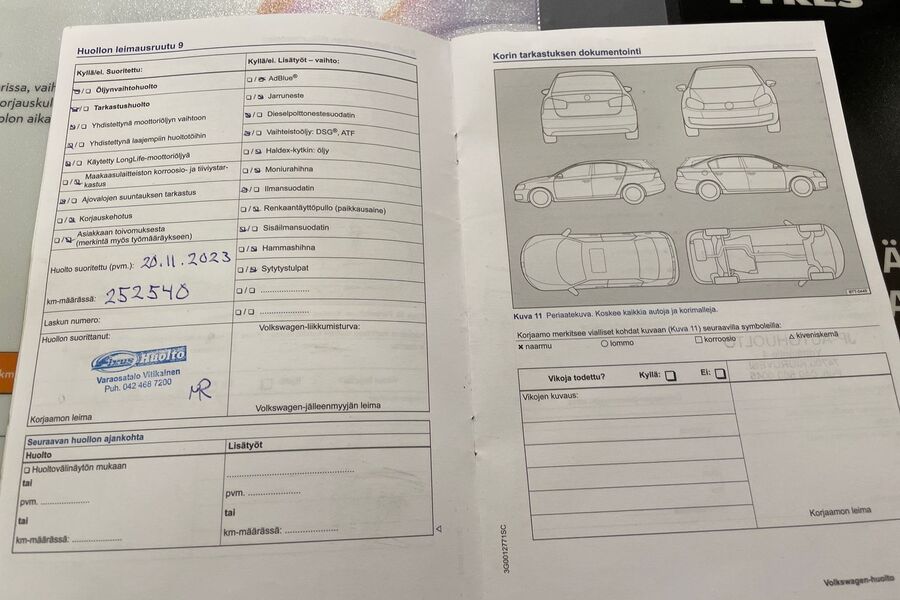 TYRES
rissa, vaih
orjauskul
olon aika
km
Huollon leimausruutu 9
Kyllä/ei. Suoritettu:
Öljynvaihtohuolto
Tarkastushuolto
Yhdistettynä moottoriöljyn vaihtoon
Yhdistettynä laajempiin huoltotöihin
Käytetty LongLife-moottoriöljyä
Maakaasulaitteiston korroosio- ja tiiviystar-
kastus
Ajovalojen suuntauksen tarkastus
Korjauskehotus
Asiakkaan toivomuksesta
(merkintä myös työmääräykseen)
Huolto suoritettu (pvm.): 20.11.2023
km-määrässä: 252540
Laskun numero:
Huollon suorittanut:
Fixus Huolto
Varaosatalo Vitikainen
Puh. 042 468 7200
MR
Korjaamon leima
Kyllä/ei. Lisätyöt – vaihto:
AdBlue®
Jarruneste
Dieselpolttonestesuodatin
Vaihteistoöljy: DSG®, ATF
Haldex-kytkin: öljy
Moniurahihna
Ilmansuodatin
Renkaantäyttöpullo (paikkausaine)
Sisäilmansuodatin
Hammashihna
Sytytystulpat
....................
....................
Volkswagen-liikkumisturva:
Volkswagen-jälleenmyyjän leima
Seuraavan huollon ajankohta
Huolto
Huoltovälinäytön mukaan
tai
pvm. ....................
tai
km-määrässä: ....................
Lisätyöt
....................
pvm. ....................
tai
km-määrässä: ....................
Korin tarkastuksen dokumentointi
B7T-0449
Kuva 11 Periaatekuva. Koskee kaikkia autoja ja korimalleja.
Korjaamo merkitsee vialliset kohdat kuvaan (Kuva 11) seuraavilla symboleilla:
naarmu lommo korroosio kiveniskemä
Vikoja todettu? Kyllä: Ei:
Vikojen kuvaus:
Korjaamon leima
3G0012771SC
Volkswagen-huolto